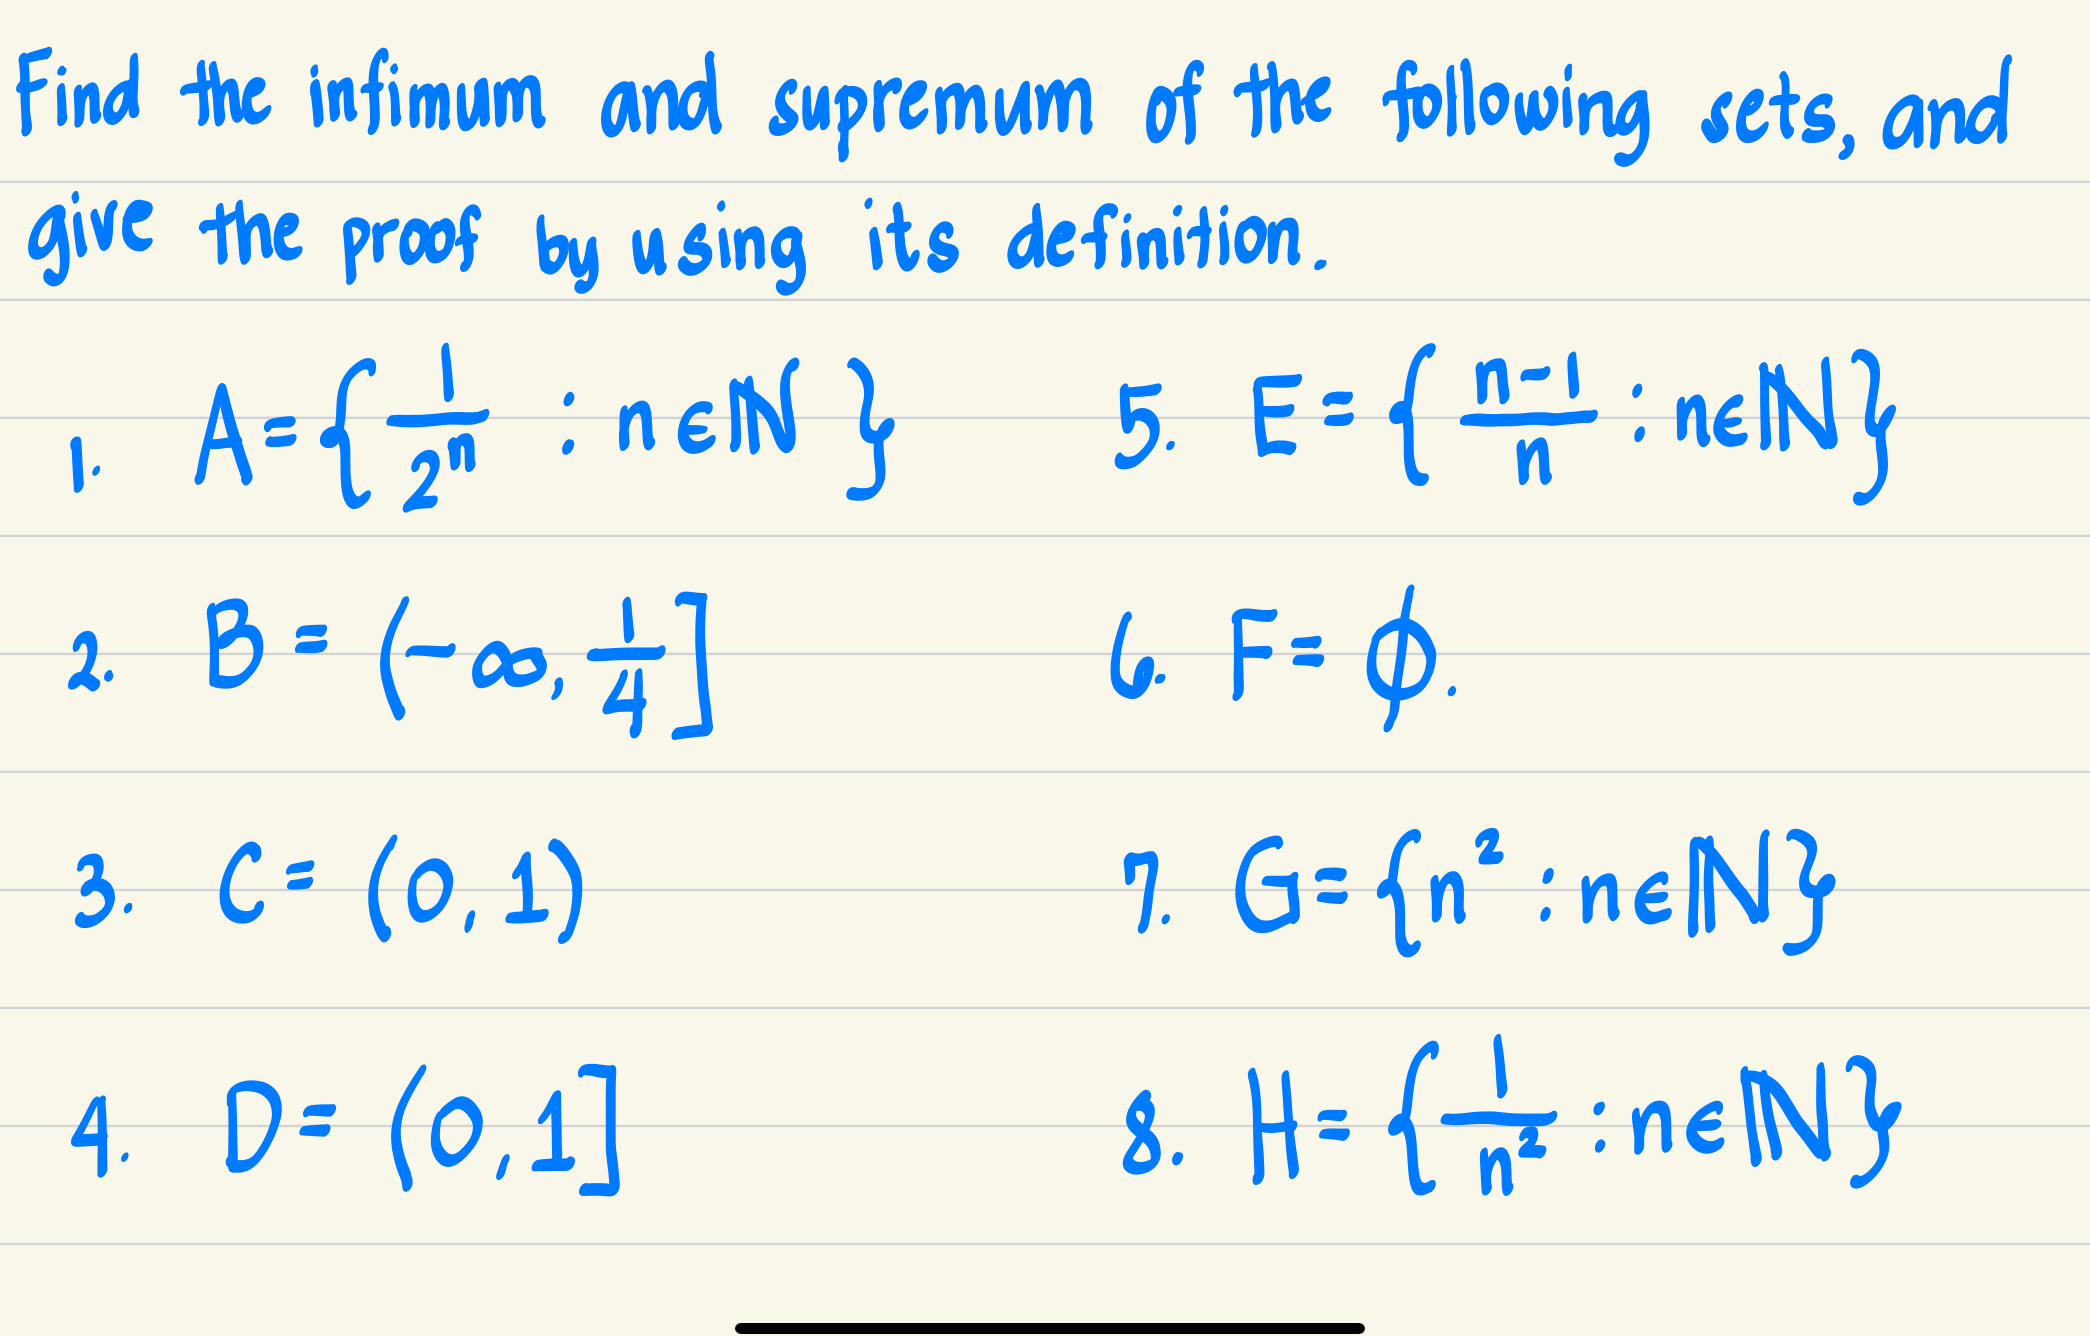 Find the infimum and supremum of the following sets, and
give the proof by using its definition.
1. A = { 1/2ⁿ : n ∈ ℕ }
5. E = { n-1/n : n ∈ ℕ }
2. B = (-∞, 1/4]
6. F = ϕ.
3. C = (0, 1)
7. G = { n² : n ∈ ℕ }
4. D = (0, 1]
8. H = { 1/n² : n ∈ ℕ }